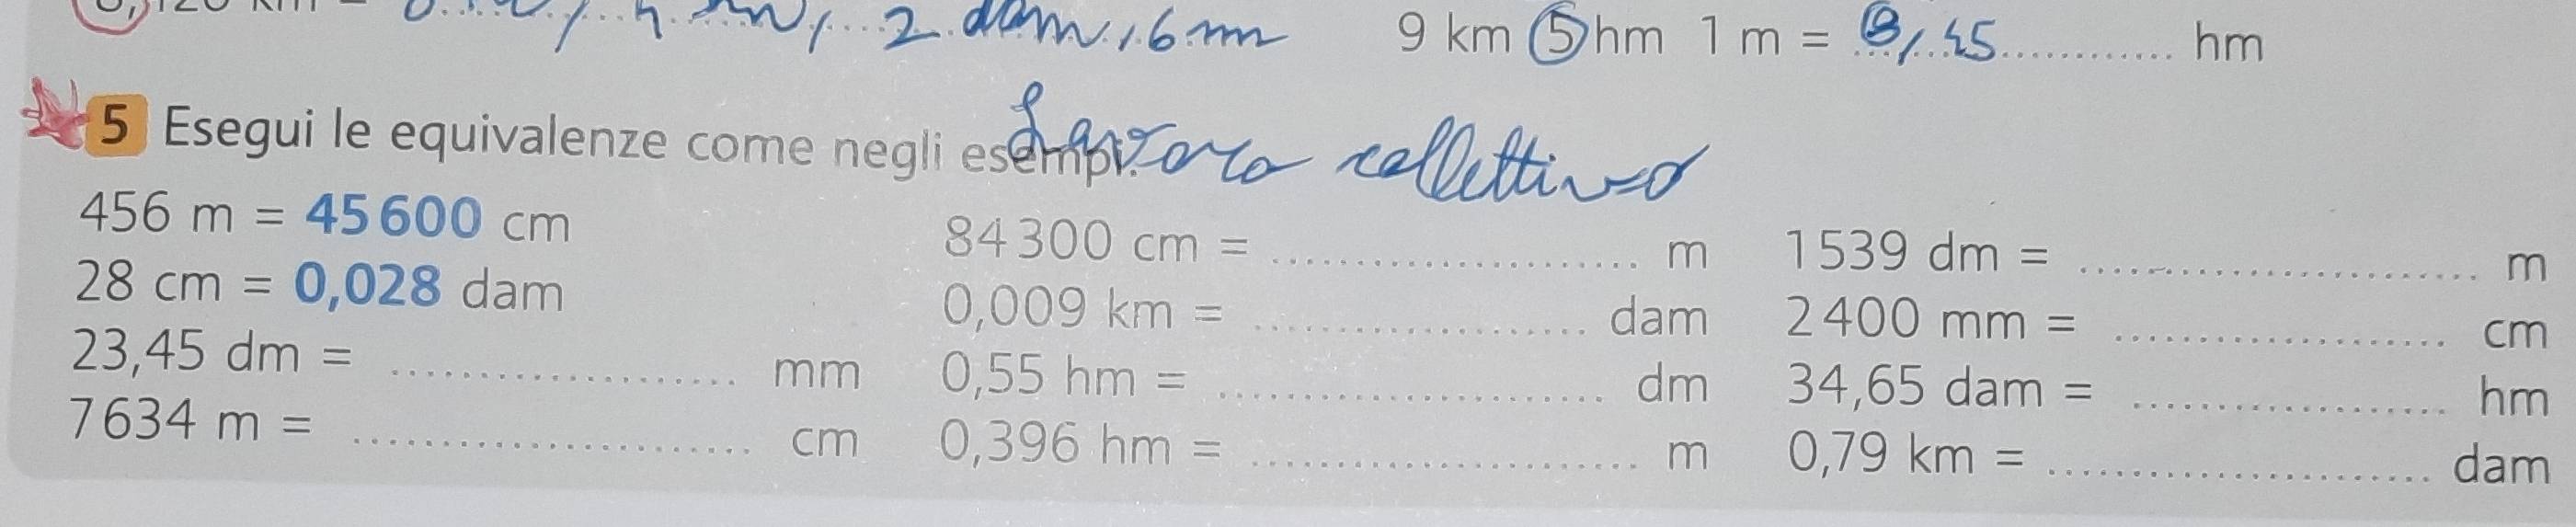 2 dam, 6 m
9 km 5 hm 1 m = ............ hm
5 Esegui le equivalenze come negli esempi. Lavoro collettivo
456 m = 45 600 cm
28 cm = 0,028 dam
23,45 dm = .................... mm
7 634 m = .................... cm
84 300 cm = .................... m
0,009 km = .................... dam
0,55 hm = .................... dm
0,396 hm = .................... m
1 539 dm = .................... m
2 400 mm = .................... cm
34,65 dam = .................... hm
0,79 km = .................... dam